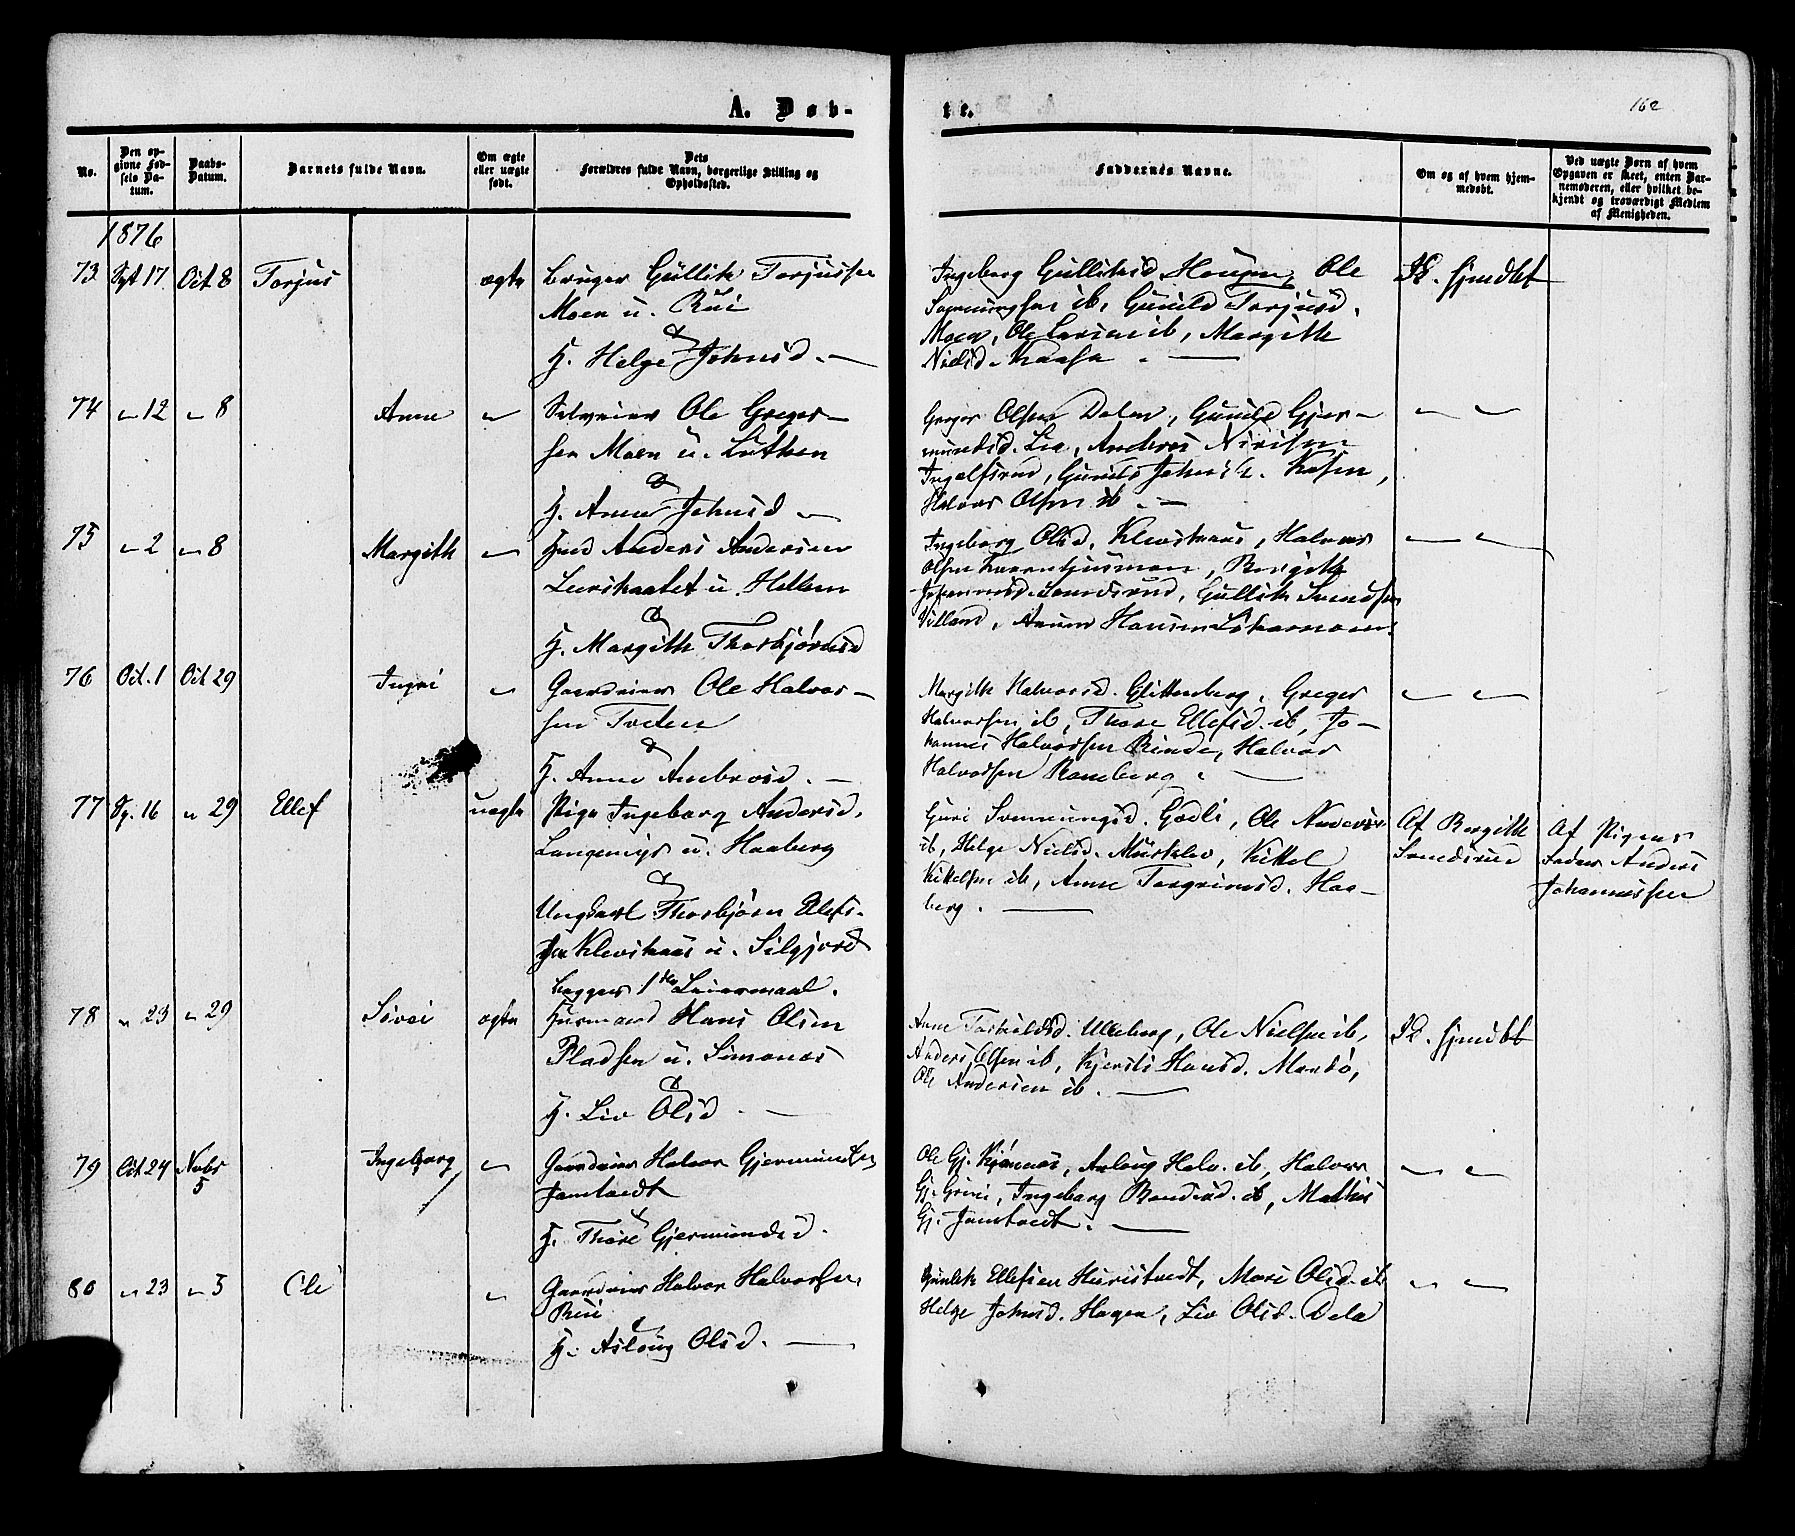 A. Døb-
te.
162
No.
Den op-
givne Fød-
sels Da-
tum.
Daabs-
Datum.
Barnets fulde Navn.
Om ægte
eller uægte
født.
Dets
Forældres fulde Navn, borgerlige Stilling og
Opholdssted.
Faddernes Navne.
Om og af hvem hjem-
medøbt.
Ved uægte Børn af hvem
Opgaven er skeet, enten Bar-
nemoderen, eller hvilket be-
kjendt og troværdigt Medlem
af Menigheden.
1876
73 Spt 17 Oct 8 Torjus ægte Bruger Gullik Torjussen
Moen u. Rui
&
H. Helge Johnsd. —
Ingeborg Gulliksd Hougen, Ole
ib, Gunild Torjusd.
Moen, Ole ib, Margith
Nielsd. Kaasa. —
Ik. hjmdbt
74 " 12 " 8 Anne " Selveier Ole Greger-
sen Moen u. Luthen
&
H. Anne Johnsd —
Greger Olsen Dalen, Gunild Gjer-
mundsd. Lia, Anders Nirisen
Ingolfsrud, Gunild Johnsd. Kasin,
Halvor Olsen ib. —
" "
75 " 2 " 8 Margith " Hmd Anders Andersen
u. Hellem
&
H. Margith Thorbjørnsd
Ingeborg Olsd. Klevstraas, Halvor
Olsen, Bergith
Johannesd. Sandsrud, Gullik Svendsen
Villand, Hansen
" "
76 Oct. 1 Oct 29 Ingri " Gaardeier Ole Halvor-
sen Tveten
&
H. Anne Ambrosd. —
Margith Halvorsd. Glittenberg, Greger
Halvorsen ib, Thore Ellefsd. ib, Jo-
hannes Halvorsen Rinde, Halvor
Halvorsen Ramberg. —
" "
77 Sp. 16 " 29 Ellef uægte Pige Ingeborg Andersd.
Langemyr u. Haaberg
&
Ungkarl Thorbjørn Ellefs-
sen Klevstraas u. Silgjord
begges 1ste Leiermaal.
Guri Svenningsd. Gødli, Ole Anders
ib, Helge Nielsd. Musklev, Kittel
Kittelsen ib, Anne Torgrimsd. Haa-
berg. —
Af Bergith
Sandsrud
Af Pigens
Fader Anders
Johannessen
78 " 23 " 29 Sivei ægte Husmand Hans Olsen
Pladsen u. Simonas
&
H. Liv Olsd. —
Anne Torkildsd. Ulleberg, Ole Nielsen ib,
Anders Olsen ib, Kjersti Hansd. Mærbø,
Ole Andersen ib. —
Ik. hjmdbt
79 Oct 24 Novbr 5 Ingeborg " Gaardeier Halvor Gjermundsen
Jamtvedt
&
H. Thore Gjermundsd.
Ole Gj. Kjønnaas, Aslaug Halv. ib, Halvor
Gj. Grini, Ingeborg ib, Mathis
Gj. Jamtvedt. —
" "
80 " 23 " 5 Ole " Gaardeier Halvor Halvorsen
Rui
&
H. Aslaug Olsd. —
Gunlik Ellefsen Huristvedt, Mari Olsd. ib
Helge Johnsd. Hagen, Liv Olsd. Dela
" "